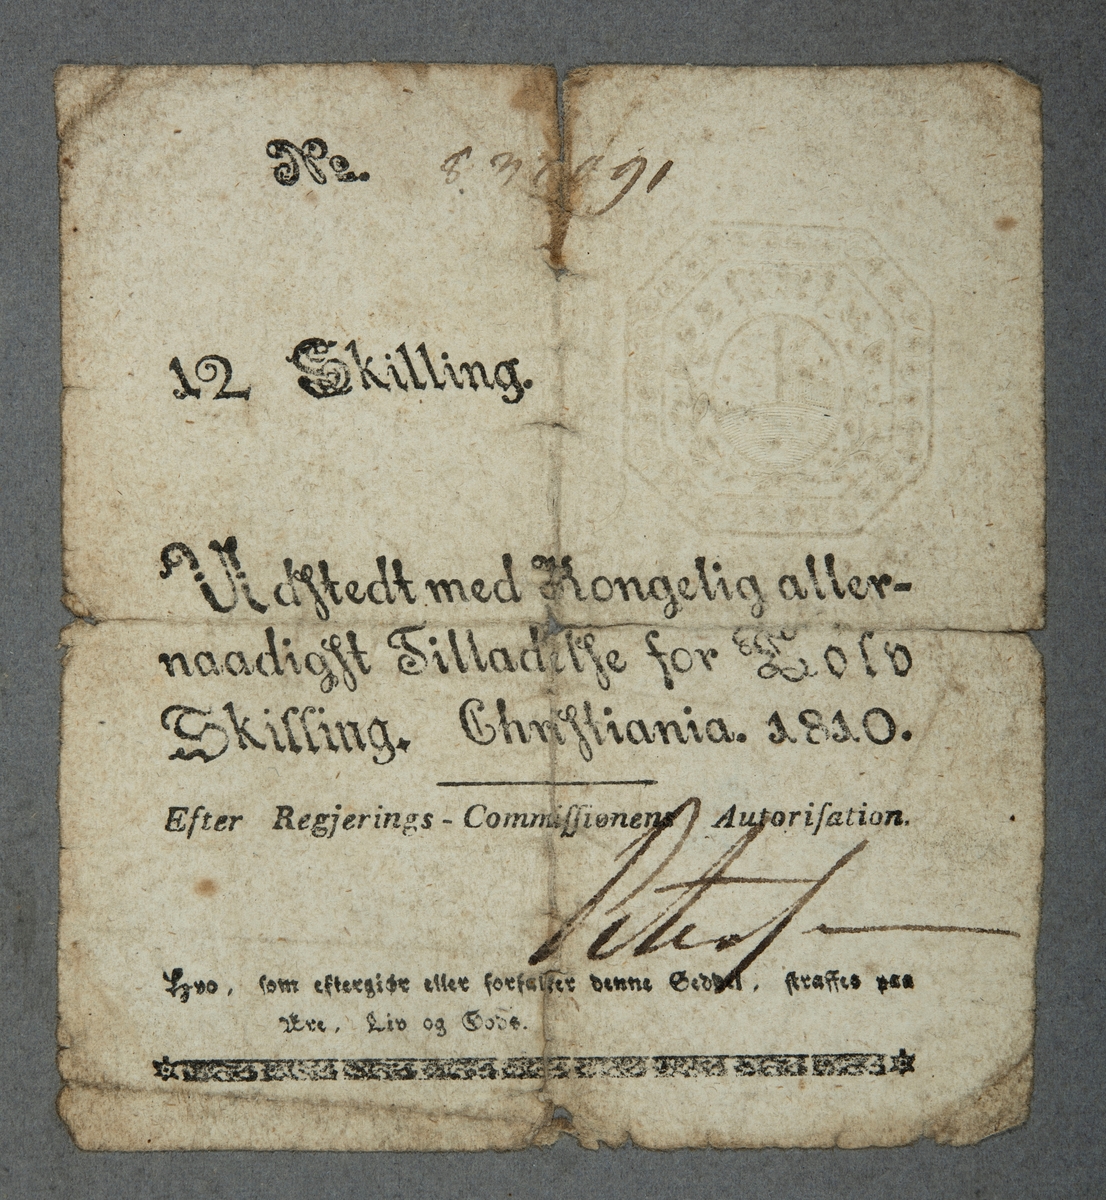 No.
12 Skilling.
Udstedt med Kongelig aller-
naadigst Tilladelse for Tolv
Skilling. Christiania. 1810.
Efter Regjerings-Commissionens Autorisation.
Hvo, som eftergiør eller forfalsker denne Seddel, straffes paa
Ære, Liv og Gods.